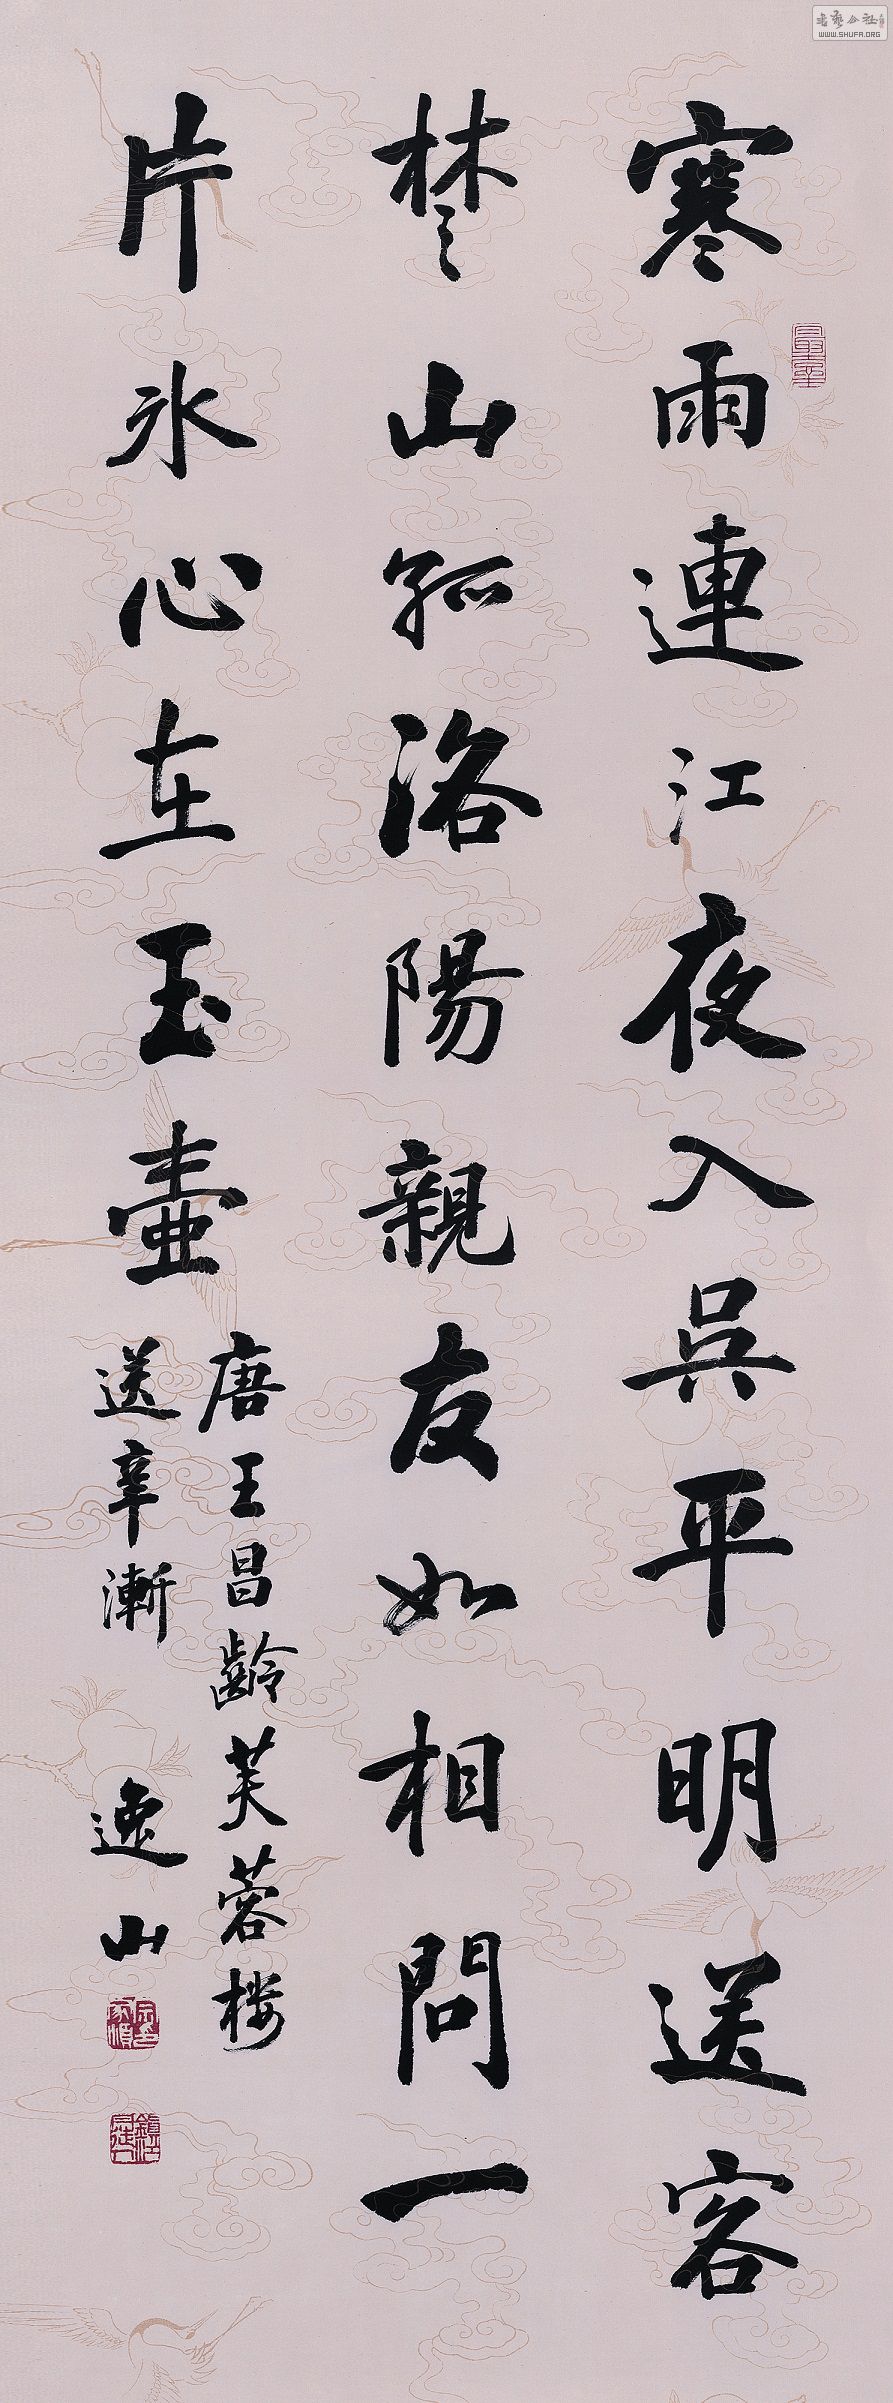 寒雨連江夜入吳平明送客
楚山孤洛陽親友如相問一
片冰心在玉壺
唐王昌齡芙蓉楼
送辛漸
逸山
書藝公社
WWW.SHUFA.ORG